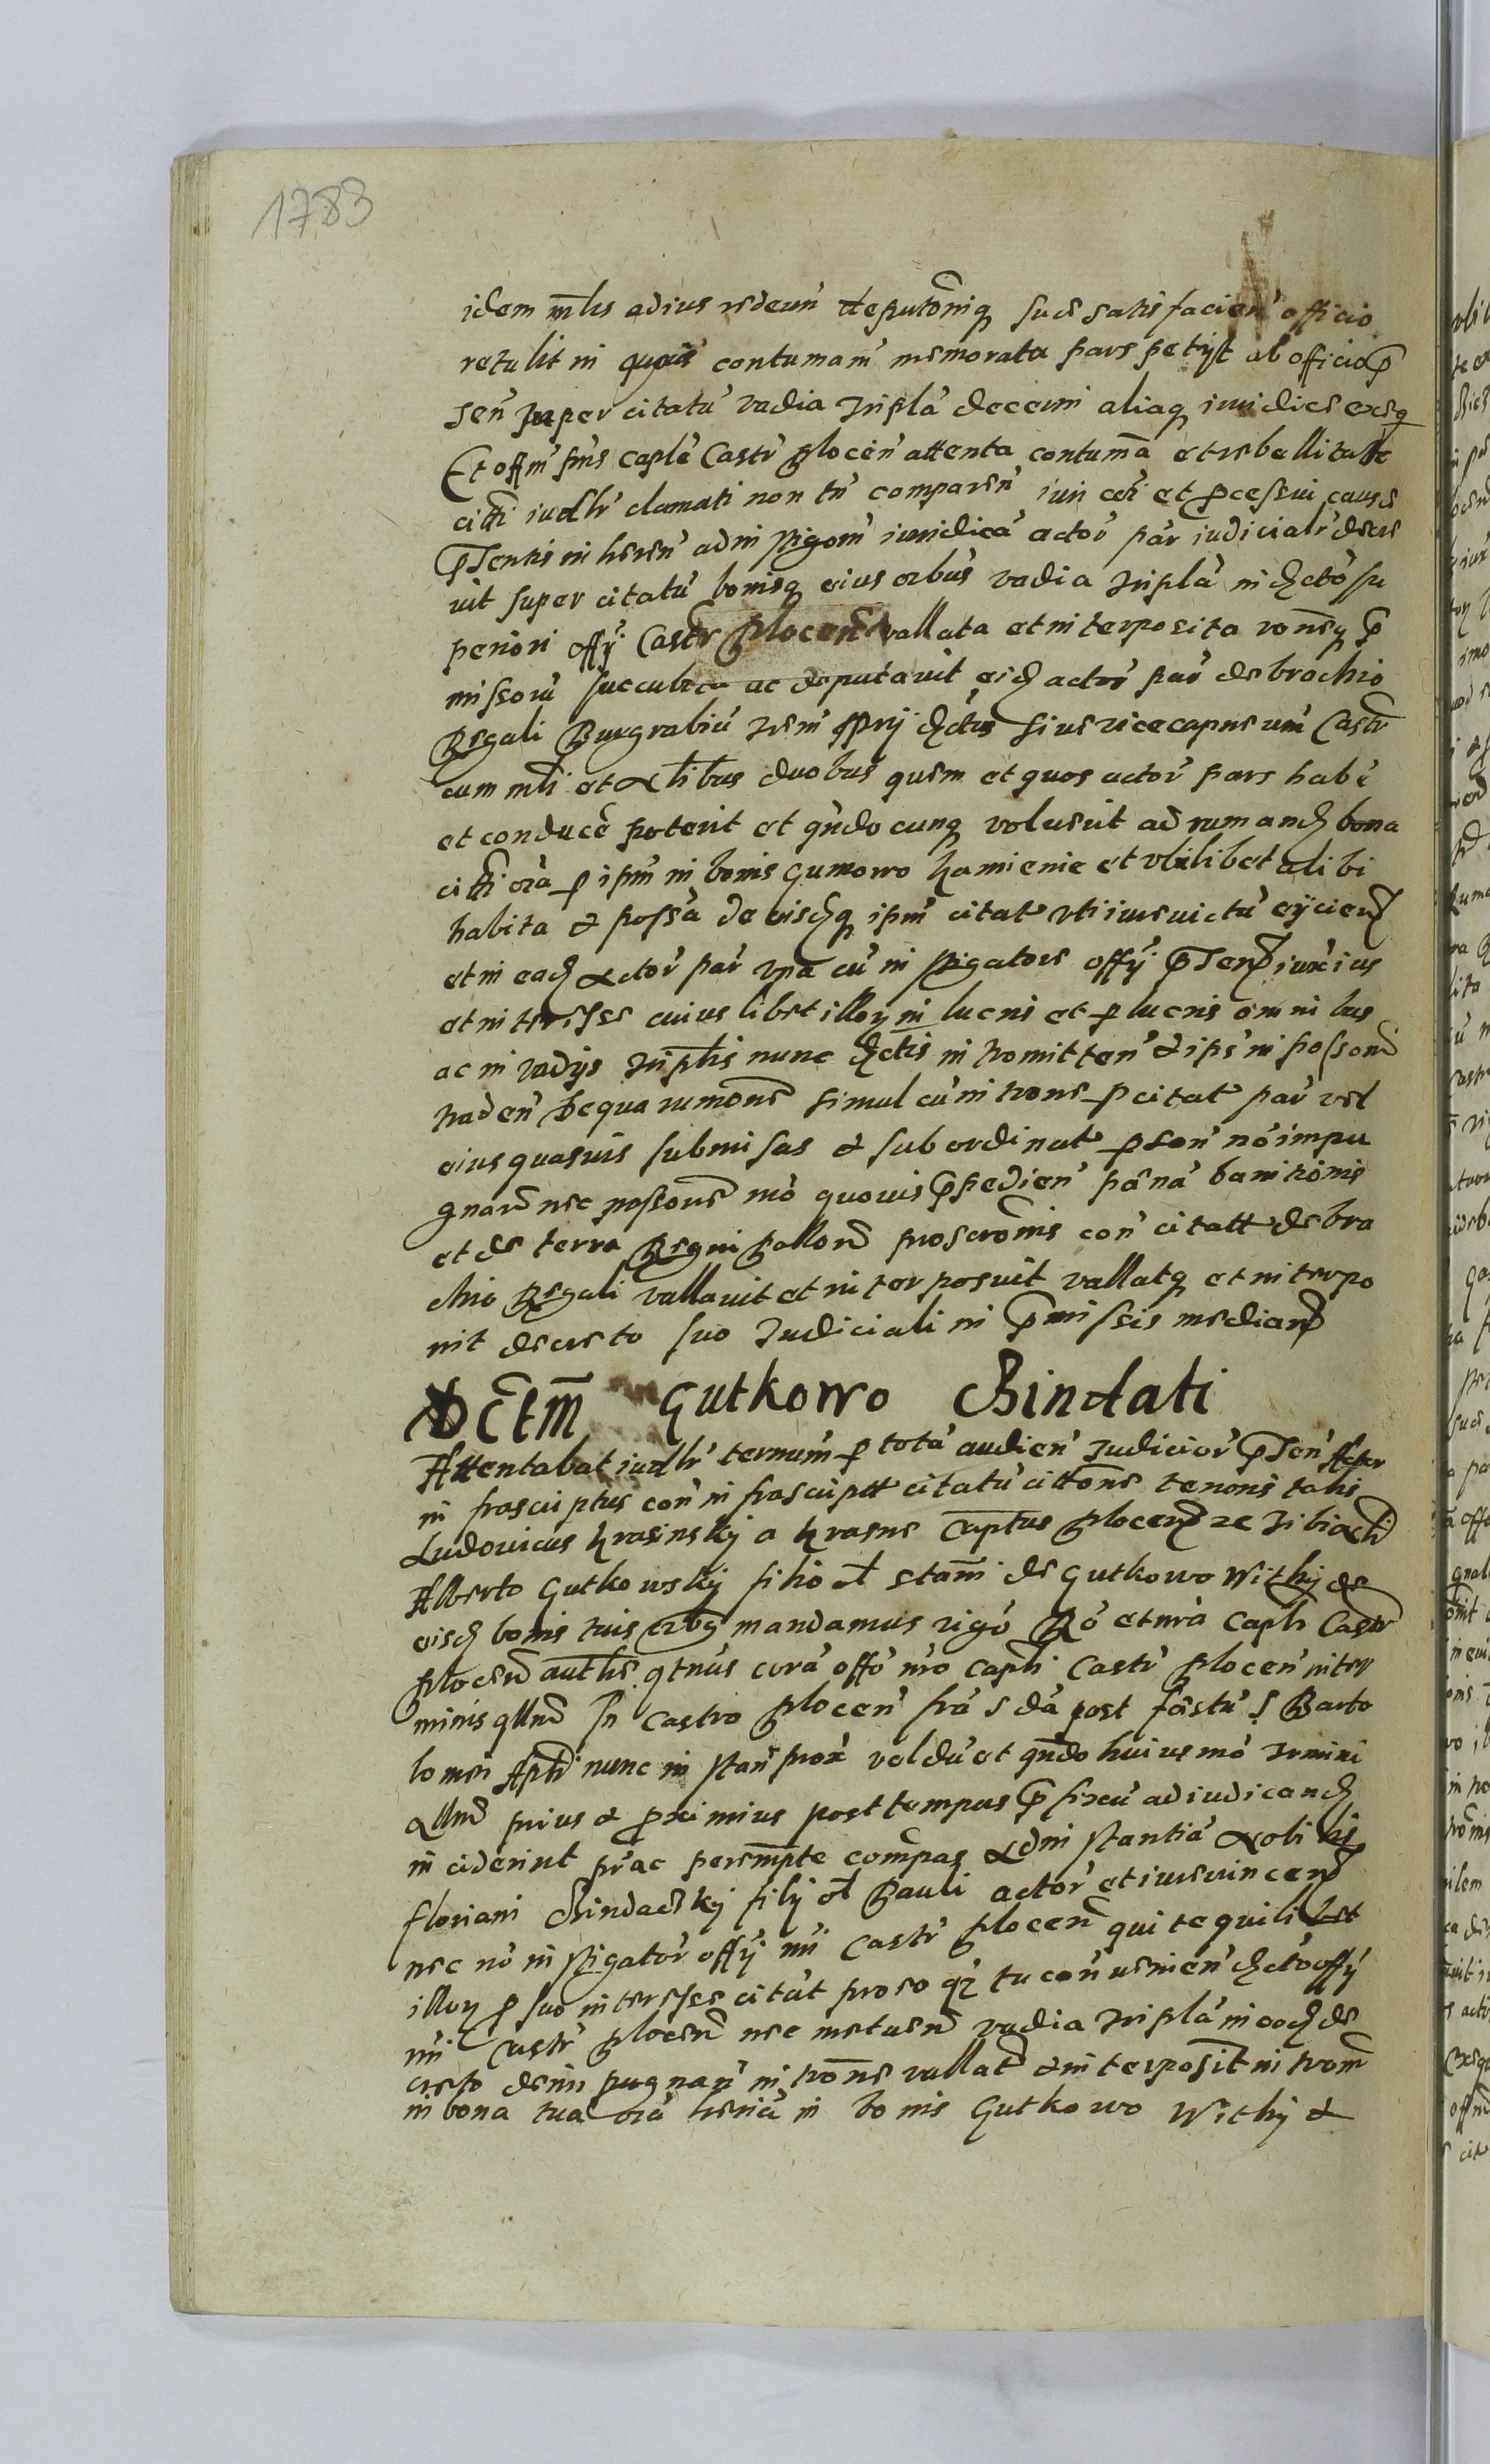 1783
idem mlis ad ius redeun deputoniq suae satis facien officio
retulit in quar contumam memorata pars petyt ab officio p
sen super citatu vadia tripla decerni aliaq iuridice exeq
Et offm pns caple Castr Plocen attenta contuma et rebellitate
citti iudlr clamati non tn comparen iuri coi et pcessui cause
psentis inheren ad instigom iuridica actor par iudicialr decre
vit super citatu bonisq eius orbus vadia tripla in dcto su
periori offy Castr Plocen vallata et interposita roneq p
missoru succubu ac deputavit eid actor par de brachio
Regali Burgrabiu trem dctus sive vicecapneum Castr
cum mli et nlibus duobus quem et quos actor pars habe
et conduce poterit et qndocunq voluerit ad rumand bona
citti oia p ipm in bonis Gumowo Kamienie et ubilibet alibi
habita et possa de eisdq ipm citat uti iure victu eijciend
et in ead actor par una cu instigatore offy psend iux ius
et interesse cuiuslibet illoy in lucris et p lucris omnibus
ac in vadys triplis nunc dctis intromitten et ips in possone
traden de qua rumone simul cu introne p citat par vel
eius quasvis submissas et subordinat pson no impu
gnan nec possone mo quovis ppedien pana banitionis
et de terra Regni Pollone proscronis con citatt de bra
chio Regali vallavit et interposuit vallatq et interpo
nit decreto suo Judiciali in pmissis mediand
Dctm Gutkowo Bindati
Attentabat iudlr termum p tota audien Judicior psen Actor
infrascriptus con infrascriptt citatu cittone tenoris talis
Ludovicus Krasinsky a Krasne Captus Plocen etc Tibi nli
Alberto Gutkowsky filio ol Stani de Gutkowo Withy de
eisd bonis tuis orbq mandamus rigo Ro et nra Capli Castr
Plocen authe qtnus cora offo nro Capli Castr Plocen in ter
minis qllnd In Castro Plocen fra 2da post festu S Barto
lomei Apli nunc instan prox veldu et qndo huiusmo Termini
qllnd prius et pximius post tempus pfixu ad iudicand
inciderint prac perempte compas Ad instantia Nobilis
Floriani Bindaczky fily ol Pauli actor et iure vincend
nec no instigator offy nri Castr Plocen qui te quilibet
illoy p suo interesse citat pro eo qz tu con venien dcto offy
nri Castr Plocen nec metuen vadia tripla in eod de
creto de impugnan introne vallat et interposit introm
in bona tua oia heria in bonis Gutkowo Withy et